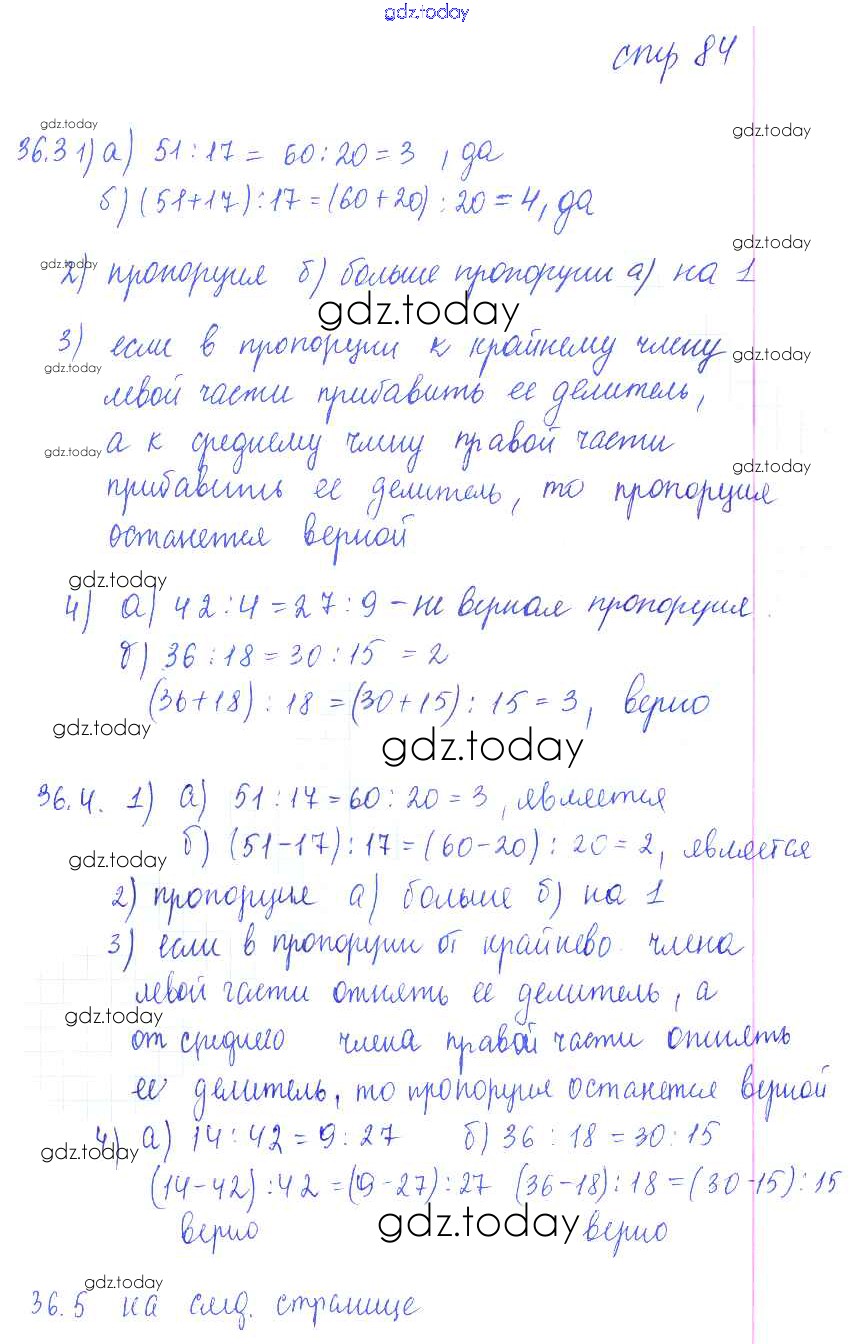 gdz.today
стр 84
gdz.today
gdz.today
36.3 1) а) 51:17 = 60:20=3, да
б) (51+17):17=(60+20):20=4, да
gdz.today
gdz.today
2) пропорция б) больше пропорции а) на 1
gdz.today
3) если в пропорции к крайнему члену
gdz.today
gdz.today
левой части прибавить ее делитель,
а к среднему члену правой части
gdz.today
gdz.today
прибавить ее делитель, то пропорция
останется верной
gdz.today
4) а) 42:4=27:9 – не верная пропорция.
б) 36:18=30:15 = 2
(36+18):18=(30+15):15=3, верно
gdz.today
gdz.today
36.4. 1) а) 51:17=60:20=3, является
б) (51-17):17=(60-20):20=2, является
gdz.today
2) пропорция а) больше б) на 1
3) если в пропорции от крайнево члена
левой части отнять ее делитель, а
gdz.today
от среднего члена правой части отнять
ее делитель, то пропорция останется верной
4) а) 14:42=9:27 б) 36:18=30:15
gdz.today
(14-42):42=(9-27):27 (36-18):18=(30-15):15
верно gdz.today верно
gdz.today
36.5 на след. странице